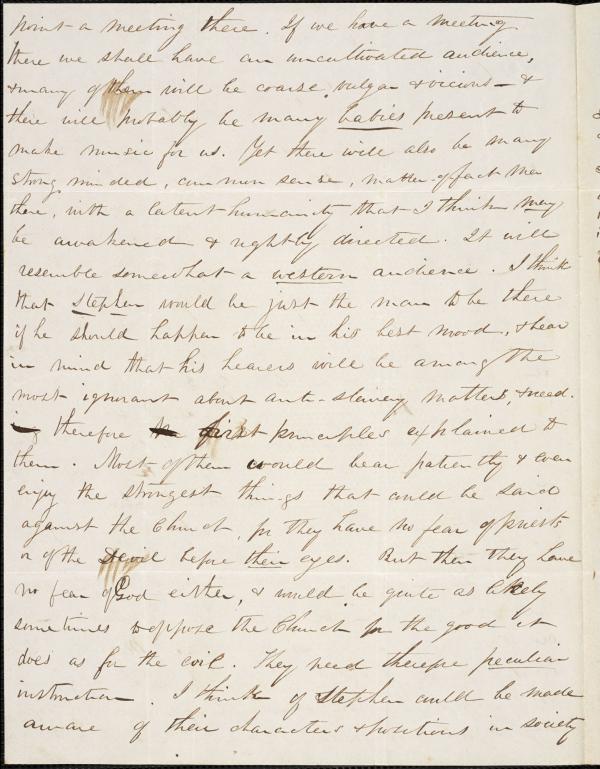 point a meeting there. If we have a meeting
there we shall have an uncultivated audience,
& many of them will be coarse, vulgar & vicious — &
there will probably be many babies present to
make music for us. Yet there will also be many
strong minded, common sense, matter-of-fact men
there, with a latent humanity that I think may
be awakened & rightly directed. It will
resemble somewhat a western audience. I think
that Stephen would be just the man to be there
if he should happen to be in his best mood, & bear
in mind that his hearers will be among the
most ignorant about anti-slavery matters, & need-
ing therefore first principles explained to
them. Most of them would hear patiently & even
enjoy the strongest things that could be said
against the Church, for they have no fear of priests
or of the Devil before their eyes. But then they have
no fear of God either, & would be quite as likely
sometimes to oppose the Church for the good it
does as for the evil. They need therefore peculiar
instruction. I think if Stephen could be made
aware of their characters & positions in society